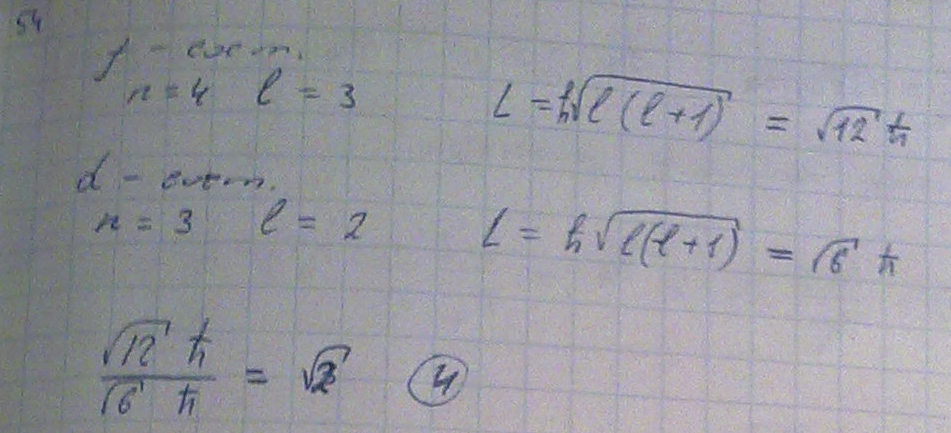 54
f - сост.
n = 4 l = 3 L = ħ√(l(l+1)) = √12 ħ
d - сост.
n = 3 l = 2 L = ħ√(l(l+1)) = √6 ħ
√12 ħ / √6 ħ = √2 4